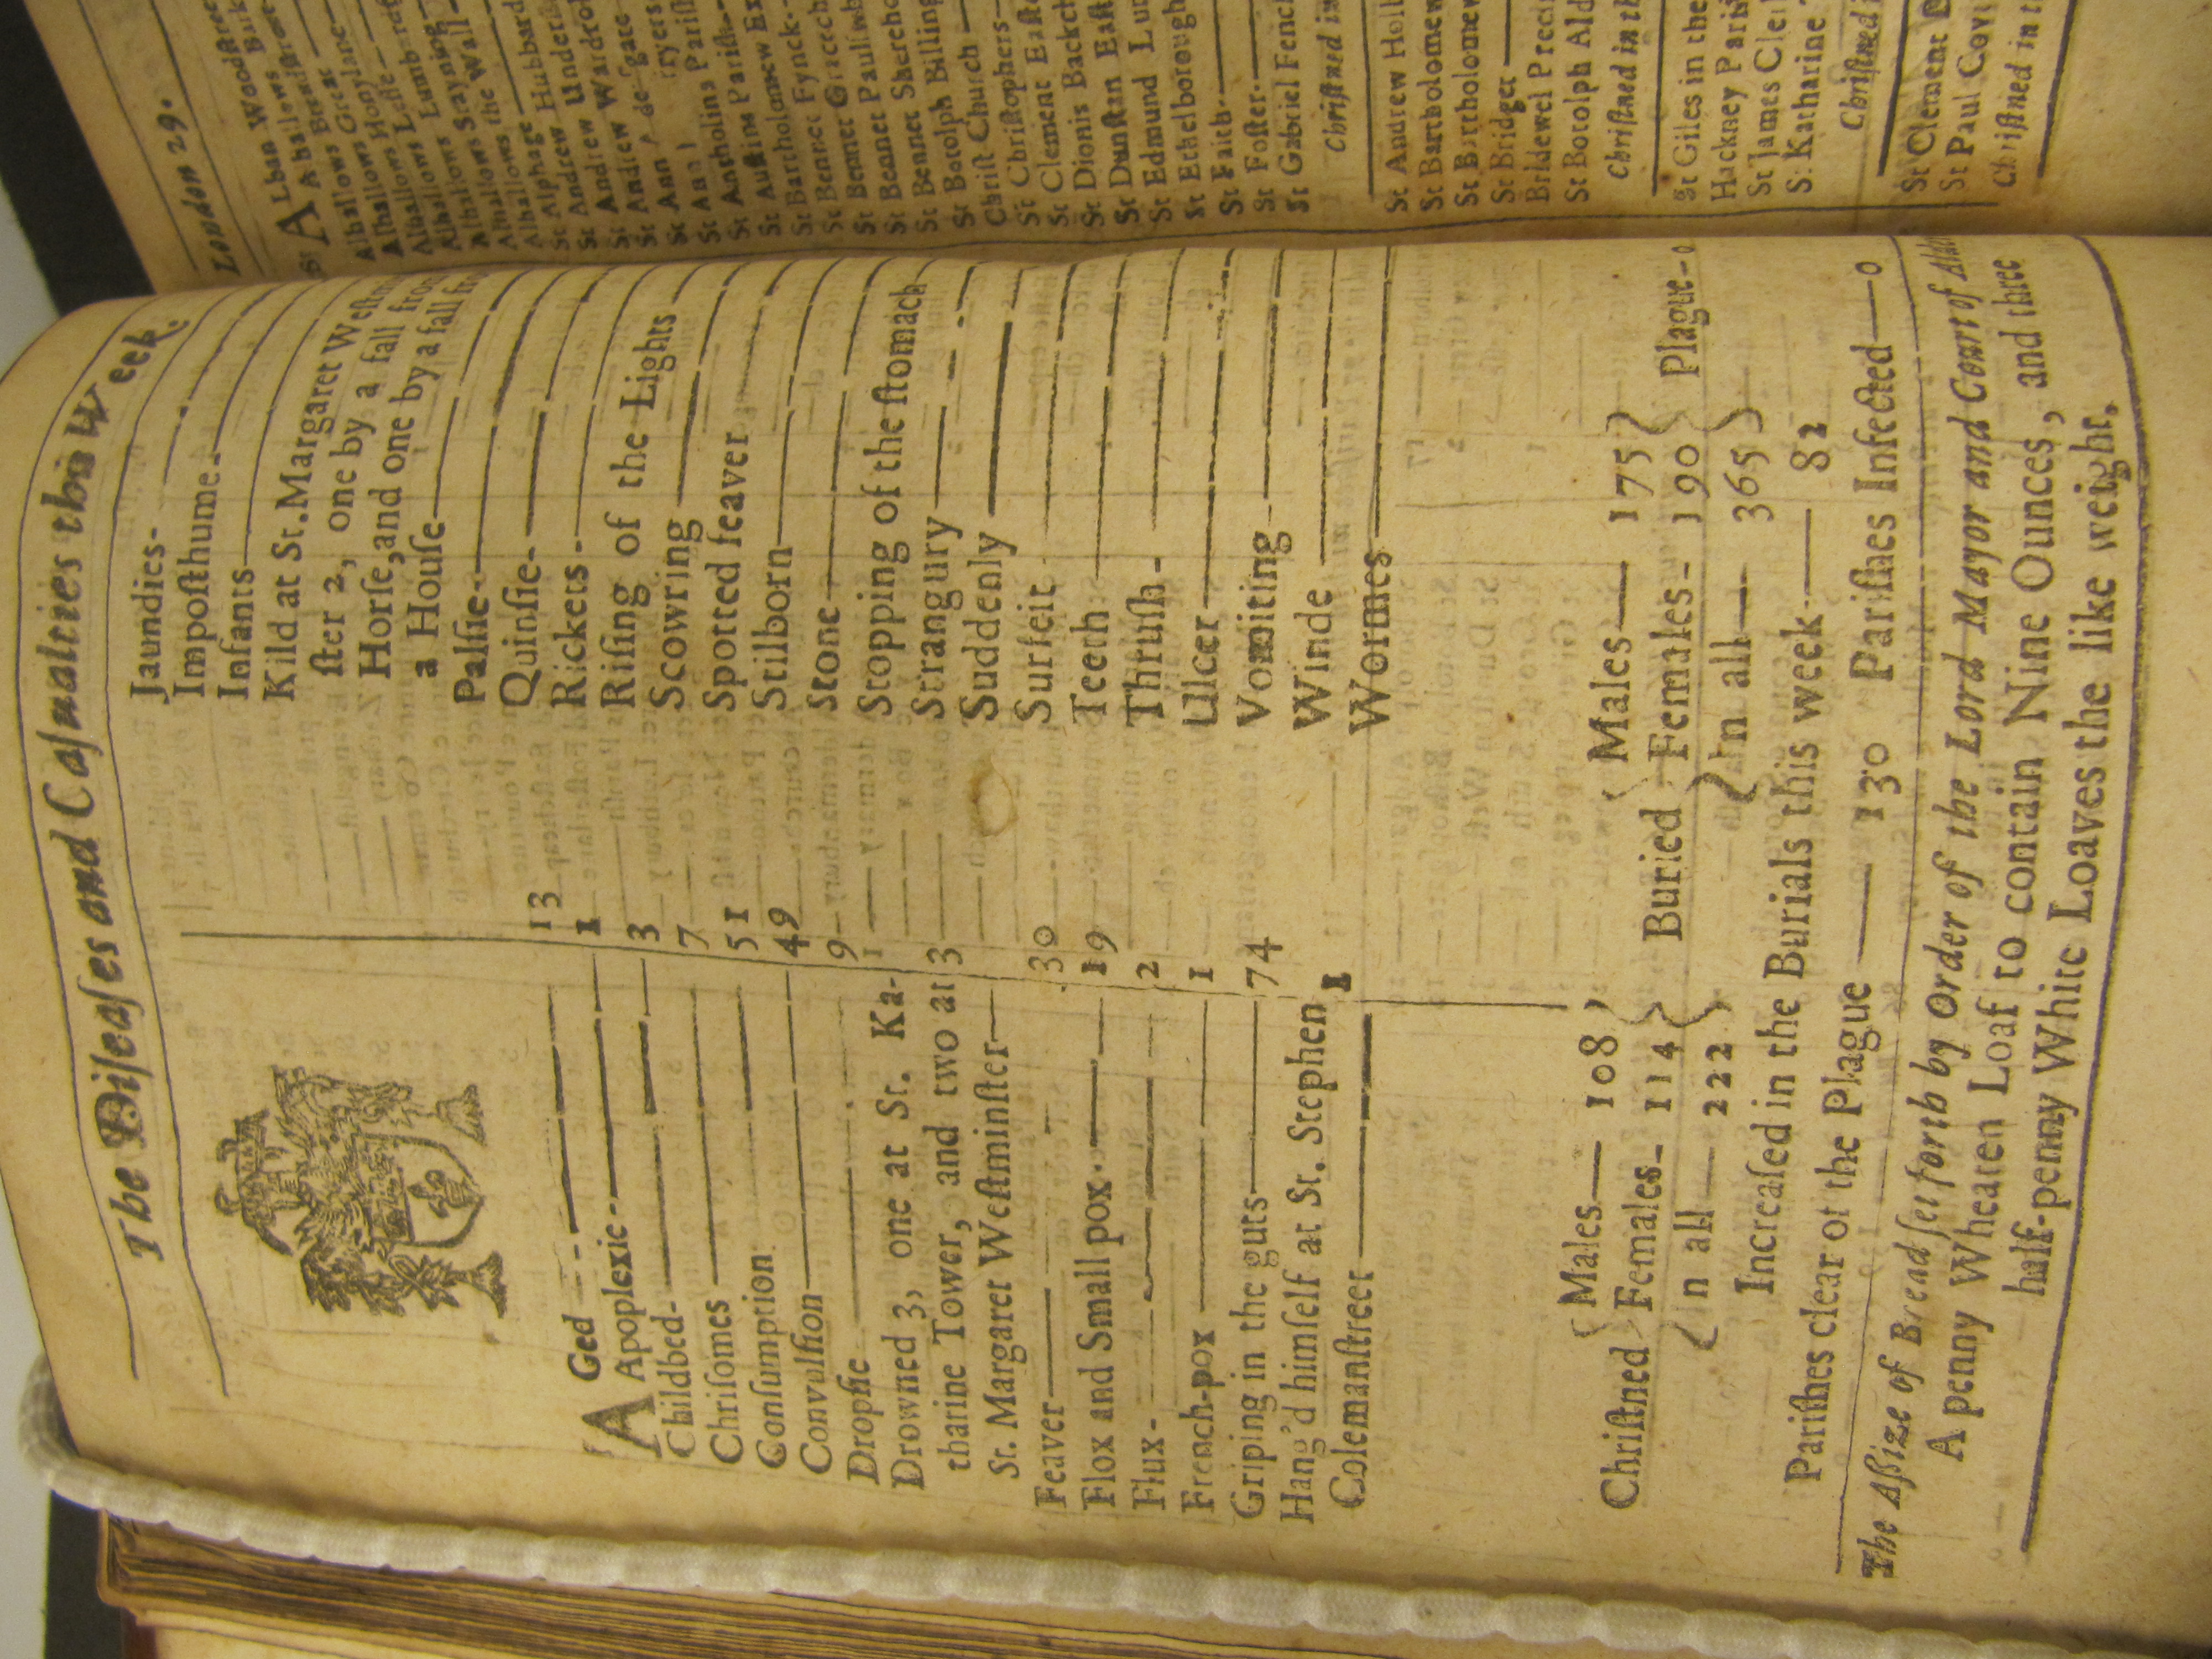 The Diſeaſes and Caſualties this Week.
AGed 13
Apoplexie 1
Childbed 3
Chriſomes 7
Conſumption 51
Convulſion 49
Dropſie 9
Drowned 3, one at St. Ka- 1
tharine Tower, and two at 3
St. Margaret Weſtminſter
Feaver 30
Flox and Small pox 19
Flux 2
French-pox 1
Griping in the guts 74
Hang'd himſelf at St. Stephen 1
Colemanſtreet
Jaundies
Impoſthume
Infants
Kild at St. Margaret Weſtm
ſter 2, one by a fall from
Horſe, and one by a fall fro
a Houſe
Palſie
Quinſie
Rickets
Riſing of the Lights
Scowring
Spotted feaver
Stilborn
Stone
Stopping of the ſtomach
Strangury
Suddenly
Surfeit
Teeth
Thruſh
Ulcer
Vomiting
Winde
Wormes
Chriſtned
Males 108
Females 114
In all 222
Buried
Males 175
Females 190
In all 365
Plague 0
Increaſed in the Burials this week 82
Pariſhes clear of the Plague 130 Pariſhes Infected 0
The Aſſize of Bread ſet forth by Order of the Lord Mayor and Court of Ald
A penny Wheaten Loaf to contain Nine Ounces, and three
half-penny White Loaves the like weight.
London 29.
St ALban Woodſtree
Alhallows Bark
Alhallows Great
Alhallows Honylane
Alhallows Leſſe
Alhallows Lumb
Alhallows Stayning
Alhallows the Wall
St Alphage
St Andrew Hubbard
St Andrew Underſ
St Andrew Wardrob
St Ann
St Ann
St Antholins Pariſh
St Auſtins Pariſh
St Bartholomew Ex
St Bennet Fynck
St Bennet Gracech
St Bennet Paulſwh
St Bennet Sherehog
St Botolph Billing
Chriſt Church
St Chriſtophers
St Clement Eaſtc
St Dionis Backch
St Dunſtan Eaſt
St Edmund Lu
St Ethelborough
St Faith
St Foſter
St Gabriel Fench
Chriſtned in
St Andrew Holb
St Bartholomew
St Bartholomew
St Bridget
Bridewel Preci
St Botolph Ald
Chriſtned in th
St Giles in the
Hackney Pariſ
St James Cler
St Katharine
Chriſtned i
St Clement D
St Paul Cov
Chriſtned in t